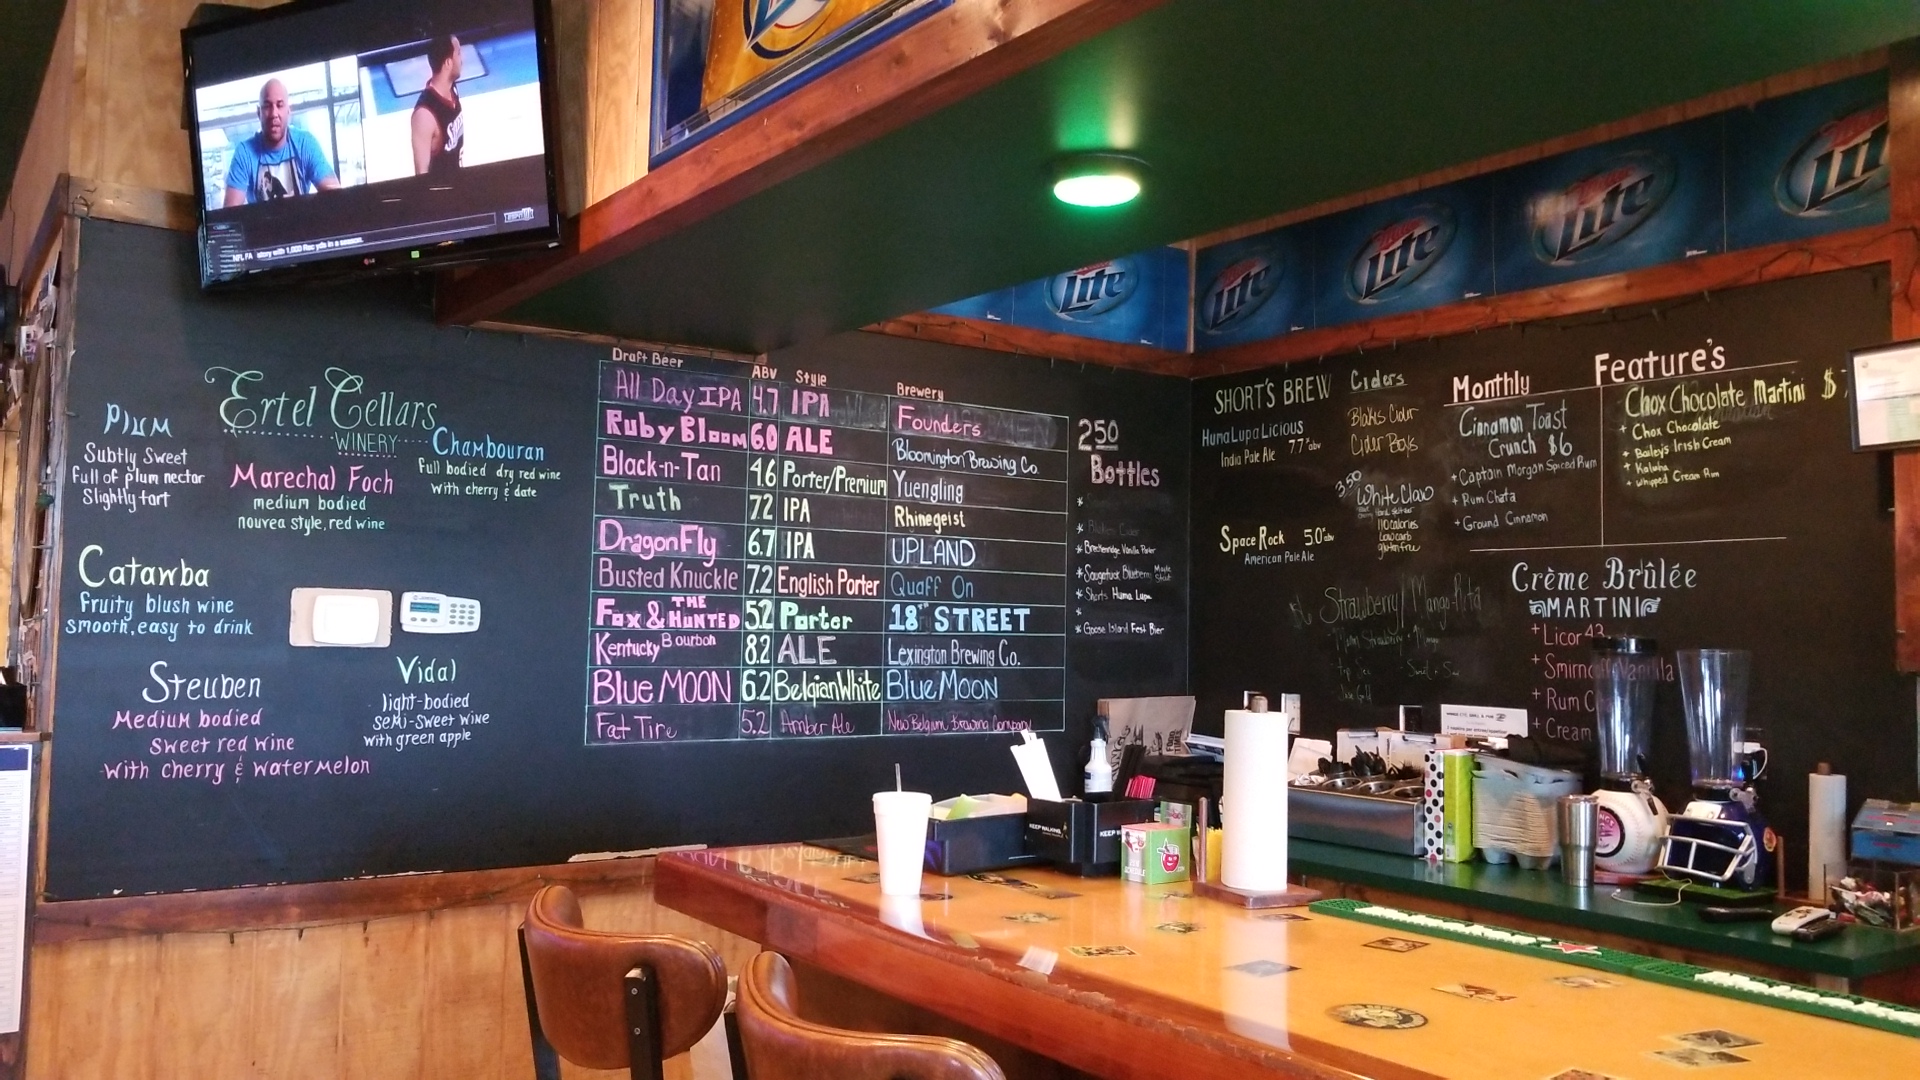 story with 1,000 Rec yds in a season.
LG
Lite
Lite
Miller
Lite
Miller
Lite
Miller
Lite
Ertel Cellars
WINERY
Plum
Subtly Sweet
full of plum nectar
Slightly tart
Marechal Foch
medium bodied
nouvea style, red wine
Chambouran
Full bodied dry red wine
with cherry & date
Catawba
fruity blush wine
smooth, easy to drink
Steuben
Medium bodied
Sweet red wine
with cherry & watermelon
Vidal
light-bodied
semi-sweet wine
with green apple
Draft Beer ABV Style Brewery
All Day IPA 4.7 IPA Founders
Ruby Bloom 6.0 ALE Bloomington Brewing Co.
Black-n-Tan 4.6 Porter/Premium Yuengling
Truth 7.2 IPA Rhinegeist
DragonFly 6.7 IPA UPLAND
Busted Knuckle 7.2 English Porter Quaff On
Fox & THE HUNTED 5.2 Porter 18th STREET
Kentucky Bourbon 8.2 ALE Lexington Brewing Co.
Blue MOON 6.2 Belgian White Blue MOON
Fat Tire 5.2 Amber Ale New Belgium Brewing Company
250
Bottles
* Breckenridge Vanilla Porter
* Saugatuck Blueberry Maple Stout
* Shorts Huma Lupa
*
* Goose Island Fest Bier
SHORT'S BREW
HumaLupaLicious
India Pale Ale 7.7% abv
Space Rock 5.0% abv
American Pale Ale
Ciders
Blakes Cider
Cider Boys
3.50
White Claw
110 calories
low carb
gluten free
Strawberry/Mango-Rita
Monthly Feature's
Cinnamon Toast
Crunch $6
+ Captain Morgan Spiced Rum
+ Rum Chata
+ Ground Cinnamon
Chox Chocolate Martini $
+ Chox Chocolate
+ Bailey's Irish Cream
+ Kaluha
+ Whipped Cream Rum
Crème Brûlée
MARTINI
+ Licor 43
+ Smirnoff Vanilla
+ Rum C
+ Cream
KEEP WALKING
KEEP